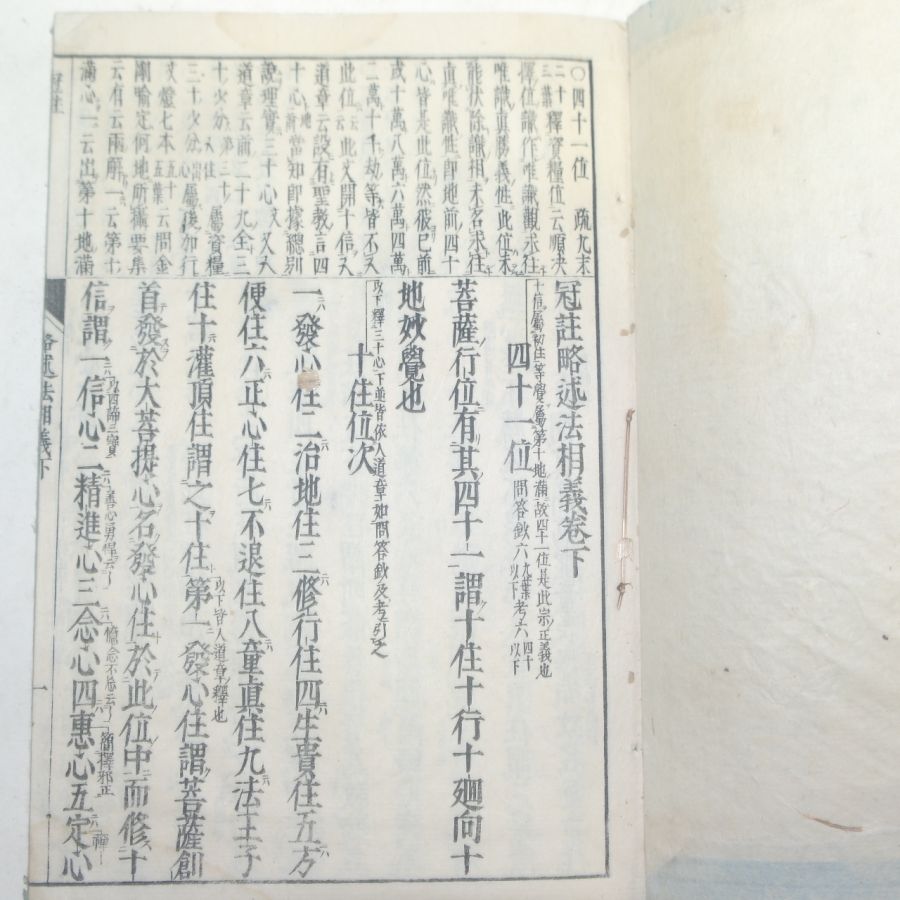 〇四十一位 疏九末
二十釋資糧位云順决
擇位識作唯識觀求住
唯識眞勝義性此位未
能伏除識相未名求住
眞唯識性即地前四十
心皆是此位然彼已前
或十萬八萬六萬四萬
二萬十千劫等皆不入
此位云云此文開十信入
道章云設有聖教言四
十心地前當知即據總別
說理實三十心故又入
道章云前二十九全三
十少分第三十屬資糧
三十少分住出心屬後加行
故燈七本五十五葉云問金
剛喻定何地所攝要集
云有云兩廨一云第十
滿心一云出第十地滿
冠註略述法相義卷下
十信屬初住等覺屬第十地滿故四十一位是此宗正義也
四十一位 問答鈔六九葉四十以下考六以下
菩薩行位有其四十一謂十住十行十廻向十
地妙覺也
以下釋三十心下並皆依入道章如問答鈔及考引之
十住位次
一發心住二治地住三修行住四生貴住五方
便住六正心住七不退住八童眞住九法王子
住十灌頂住謂之十住以下皆入道章釋也第一發心住謂菩薩創
首發於大菩提心名發心住於此位中而修十
信謂一信心二精進心善心勇悍云云三念心四惠心簡擇邪正五定心
冠註
略述法相義下
一